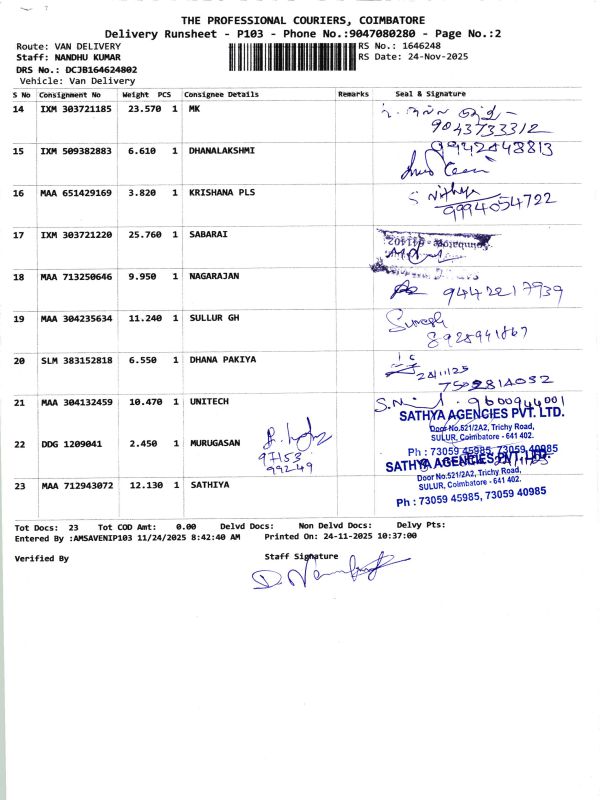 THE PROFESSIONAL COURIERS, COIMBATORE
Delivery Runsheet - P103 - Phone No.:9047080280 - Page No.:2
Route: VAN DELIVERY RS No.: 1646248
Staff: NANDHU KUMAR RS Date: 24-Nov-2025
DRS No.: DCJB164624802
Vehicle: Van Delivery
S No Consignment No Weight PCS Consignee Details Remarks Seal & Signature
14 IXM 303721185 23.570 1 MK
9043733312
15 IXM 509382883 6.610 1 DHANALAKSHMI 9942448813
16 MAA 651429169 3.820 1 KRISHANA PLS S Vithya
9994054722
17 IXM 303721220 25.760 1 SABARAI
18 MAA 713250646 9.950 1 NAGARAJAN 9442217939
19 MAA 304235634 11.240 1 SULLUR GH Suresh
8925941867
20 SLM 383152818 6.550 1 DHANA PAKIYA
24/11/25
7502814032
21 MAA 304132459 10.470 1 UNITECH 9600944001
SATHYA AGENCIES PVT. LTD.
Door No.521/2A2, Trichy Road,
SULUR, Coimbatore - 641 402.
Ph : 73059 45985, 73059 40985
22 DDG 1209041 2.450 1 MURUGASAN
97153
99249
SATHYA AGENCIES PVT. LTD.
Door No.521/2A2, Trichy Road,
SULUR, Coimbatore - 641 402.
Ph : 73059 45985, 73059 40985
23 MAA 712943072 12.130 1 SATHIYA
Tot Docs: 23 Tot COD Amt: 0.00 Delvd Docs: Non Delvd Docs: Delvy Pts:
Entered By :AMSAVENIP103 11/24/2025 8:42:40 AM Printed On: 24-11-2025 10:37:00
Verified By Staff Signature